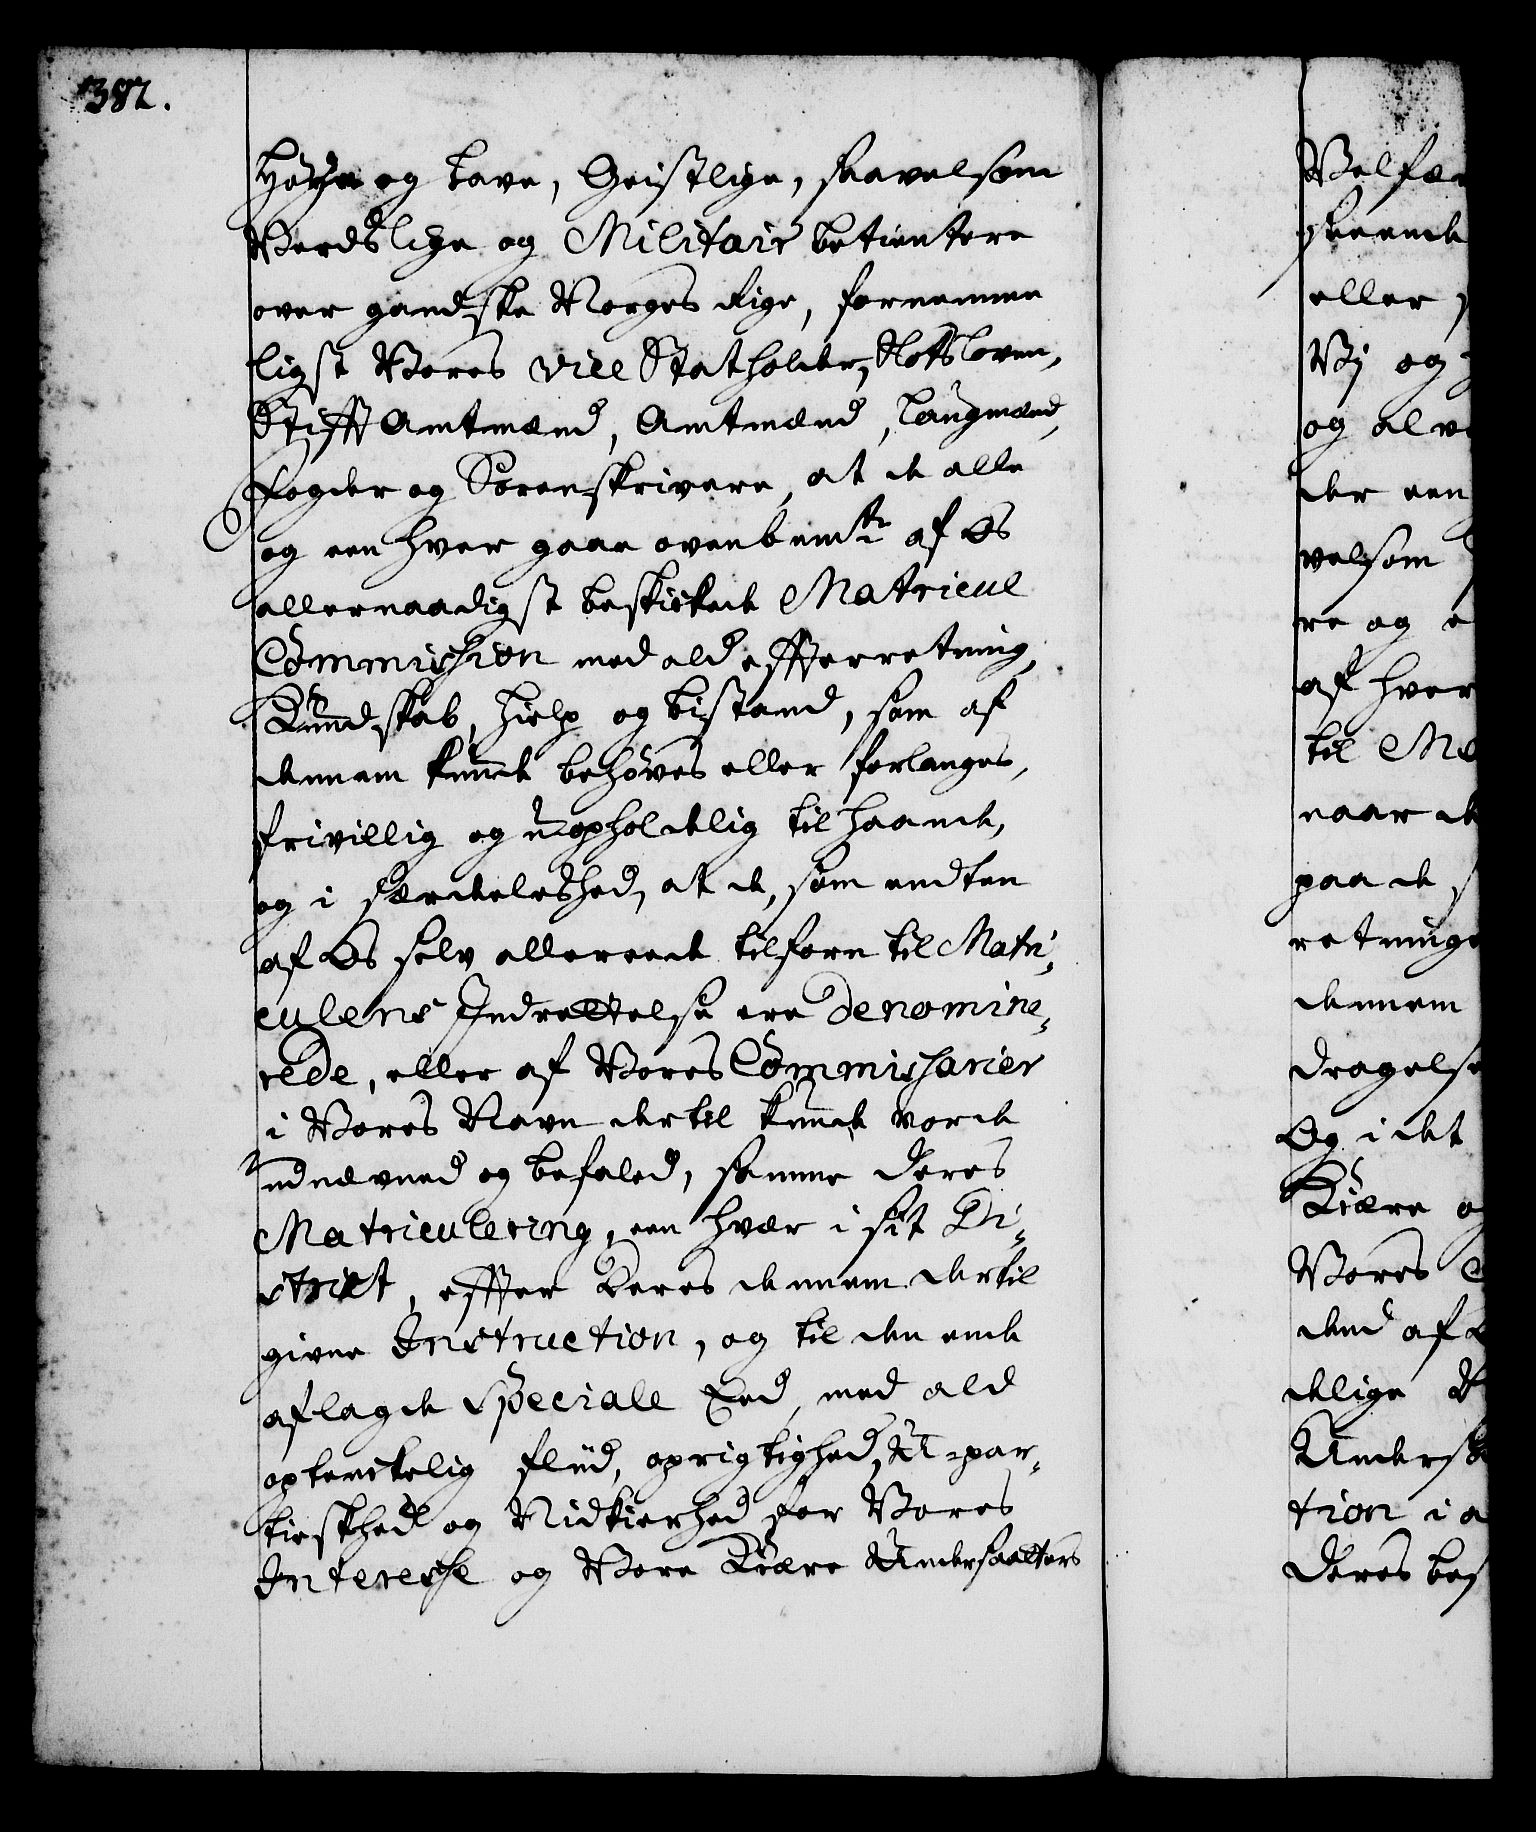 382.
Høye og Lave, Geistlige, saavelsom
Verdslige og Militair betientere
over gandske Norges Rige, fornemme
ligst Vores Vice Statholder, Slotsloven,
Stifft Amtmænd, Amtmænd, Laugmænd,
Fogder og Sorenskrivere, at de alle
og een hver gaae ovenbemte af Os
allernaadigst beskickede Matricul
Commission med ald effterretning,
Kundskab, hielp og bistand, som af
dennem kunde behøves eller forlanges,
frivillig og uopholdelig til haande,
og i særdeleshed, at de, som endten
af Os selv allereede tilforn til Matri-
culens Indrettelse ere Denomine-
rede, eller af Vores Commissarier
i Vores Navn dertil kunde vorde
udnævned og befaled, samme deres
Matriculering, een hvær i sit Di-
strict, effter Deres dennem dertil
givne Instruction, og til den ende
aflagde Speciale Eed, med ald
optenckelig fliid, oprigtighed, U-par-
tieskhed og Nidkierhed for Vores
Interesse og Vore Kiære Undersaatters
Velfæ
skeende
eller
Vj og
og alv
der een
velsom
re og e
af hver
til Ma
naar de
paa de
retninge
dennem
dragelse
Og i det
Kiære og
Vores
dend af
delige
Undersa
tion i a
Deres bes